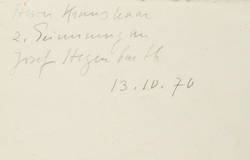 Herrn
z. Erinnerung an
Josef Hegenbarth
13.10.70